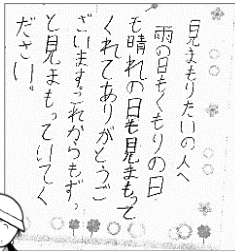 見まもりたいの人へ
雨の日もくもりの日
も晴れの日も見まもって
くれてありがとうご
ざいます。これからもずっ
と見まもっていてく
ださい。